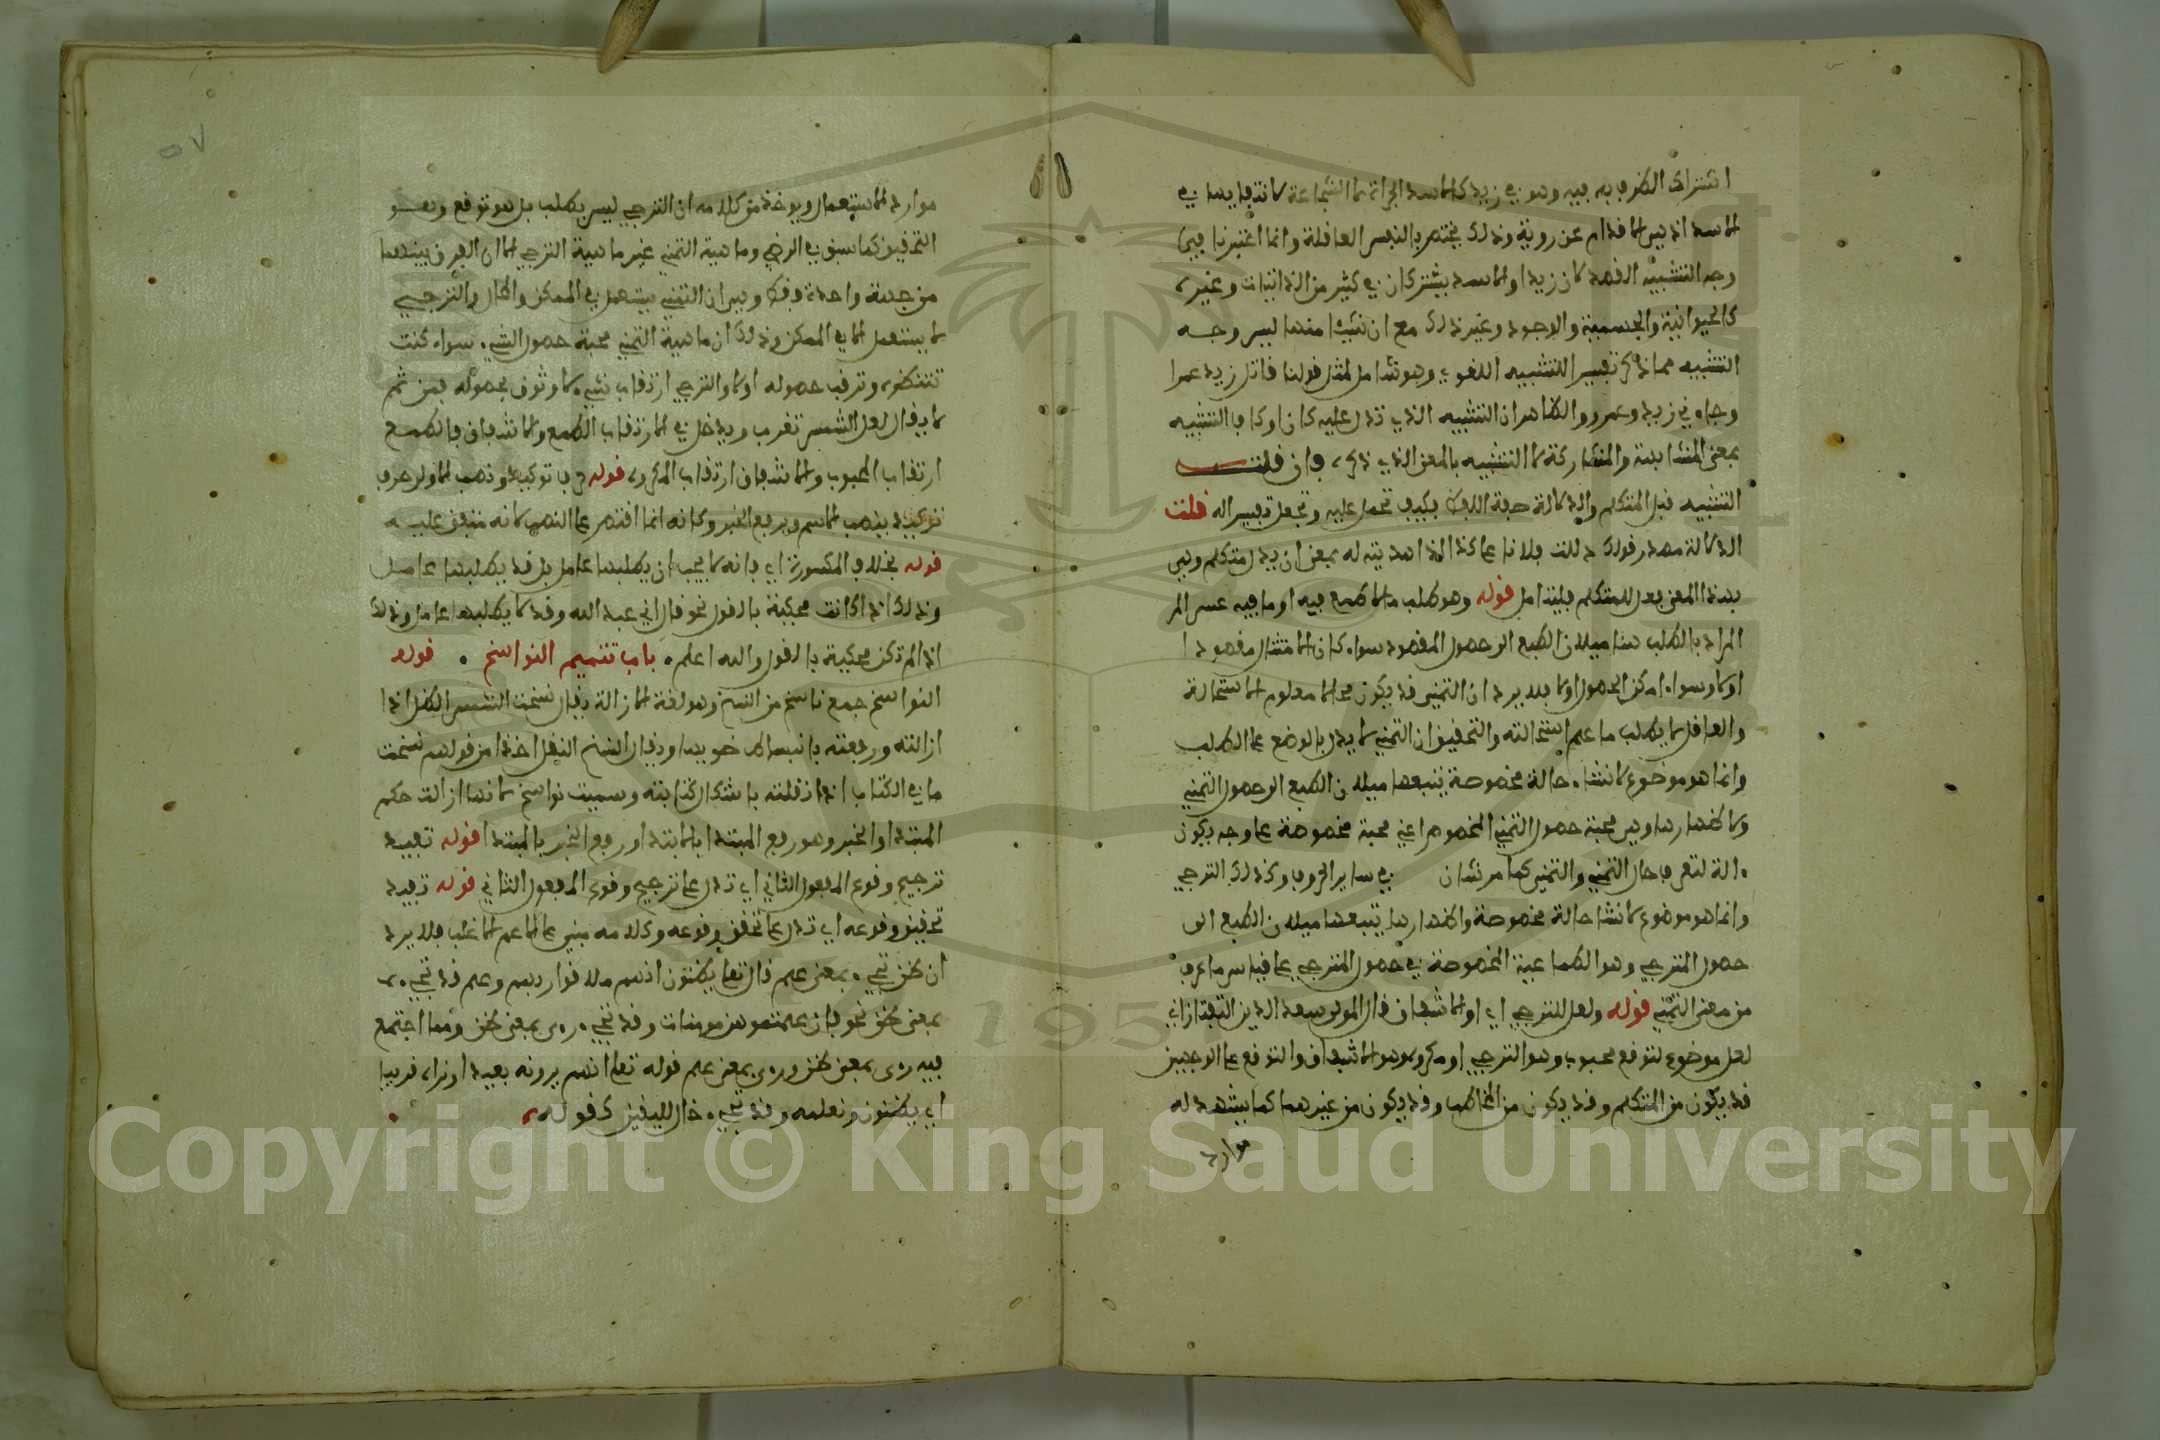 اشتراك الطرفين فيه وهو في زيد كالاسد الجراة لا الشجاعة لانتفايها في
الاسد اذ هي الاقدام عن روية وذلك يختص بالنفس العاقلة وانما اعتبرنا في
وجه التشبيه القصد لان زيدا والاسد يشتركان في كثير من الذاتيات وغيرها
كالحيوانية والجسمية والوجود وغير ذلك مع ان شيئا منها ليس وجه
التشبيه مما ذكر تفسير للتشبيه اللغوي وهو شامل لمثل قولنا قاتل زيد عمرا
وجاءني زيد وعمرو والظاهر ان التشبيه الذي تدل عليه كان او كاف التشبيه
بمعنى المشابهة والمشاركة لا التشبيه بالمعنى الذي ذكره فان قلت
التشبيه فعل المتكلم والدلالة صفة اللفظ فكيف تحمل عليه وتجعل تفسيرا له قلت
الدلالة مصدر قولك دللت فلانا على كذا اذا هديته له بمعنى ان يدل متكلم وهي
بهذا المعنى فعل للمتكلم فليتامل قوله وهو طلب ما لا طمع فيه او ما فيه عسر المر
المراد بالطلب هنا ميلان الطبع الى حصول المقصود سواء كان الامتثال مقصودا
اولا وسواء امكن الحصول اولا فلا يرد ان التمني قد يكون محالا معلوم الاستحالة
والعاقل لا يطلب ما علم استحالته والتحقيق ان التمني لا يدل بالوضع على الطلب
وانما هو موضوع لانشاء حالة مخصوصة يتبعها ميلان الطبع الى حصول التمني
ولاظهارها وهي محبة حصول التمني المخصوص اعني محبة مخصوصة على وجه يكون
الة لتعرف حال التمني والتمني كما مر نشان في ساير الحروف وكذلك الترجي
وانما هو موضوع لانشاء حالة مخصوصة واظهارها يتبعها ميلان الطبع الى
حصول المترجي وهو الطماعية المخصوصة في حصول المترجي على قياس ما عرف
من معنى التمني قوله ولعل للترجي اي او الاشفاق قال المولى سعد الدين التفتازاني
لعل موضوع لتوقع محبوب وهو الترجي او مكروه وهو الاشفاق والتوقع على الوجهين
قد يكون من المتكلم وقد يكون من المخاطب وقد يكون من غيرهما كما يشهد له
موارد
٥٧
موارد الاستعمال ويوخذ من كلامه ان الترجي ليس بطلب بل هو توقع وهو
التحقيق كما سبق في الرضي وماهية التمني غير ماهية الترجي لا ان الفرق بينهما
من جهة واحدة فقط وهي ان التمني يستعمل في الممكن والمحال والترجي
لا يستعمل الا في الممكن وذلك ان ماهية التمني محبة حصول الشيء سواء كنت
تنتظره وترقب حصوله اولا والترجي ارتقاب شيء لا وثوق بحصوله فمن ثم
لا يقال لعل الشمس تغرب ويدخل في الارتقاب الطمع والاشفاق فالطمع
ارتقاب المحبوب والاشفاق ارتقاب المكروه قوله حرفا توكيد وذهب الاول حرف
توكيد ينصب الاسم ويرفع الخبر وكانه انما اقتصر على النصب لانه متفق عليه
قوله بخلاف المكسورة اي فانه لا يجب ان يطلبها عامل بل قد يطلبها عامل
وذلك اذا كانت محكية بالقول نحو قال اني عبد الله وقد لا يطلبها عامل وذلك
اذا لم تكن محكية بالقول والله اعلم. باب تتميم النواسخ. قوله
النواسخ جمع ناسخ من النسخ وهو لغة الازالة يقال نسخت الشمس الظل اذا
ازالته ورفعته بانبساط ضوئها ويقال النسخ النقل اخذا من قولهم نسخت
ما في الكتاب اذا نقلته باشكال كتابته وسميت نواسخ لانها ازالت حكم
المبتدا والخبر وهو رفع المبتدا بالابتدا ورفع الخبر بالمبتدا قوله تفيد
ترجيح وقوع المفعول الثاني اي تدل على ترجيح وقوع المفعول الثاني قوله تفيد
تحقيق وقوعه اي تدل على تحقق وقوعه وكلامه مبني على الاعم الاغلب فلا يرد
ان ظن تجيء بمعنى علم قال تعلى يظنون انهم ملاقوا ربهم وعلم قد تجيء
بمعنى ظن نحو فان علمتموهن مومنات وقد تجيء راى بمعنى ظن ومما اجتمع
فيه راى بمعنى ظن وراى بمعنى علم قوله تعلى انهم يرونه بعيدا ونراه قريبا
اي يظنون ونعلمه وقد تجيء خال لليقين كقوله
Copyright © King Saud University
195